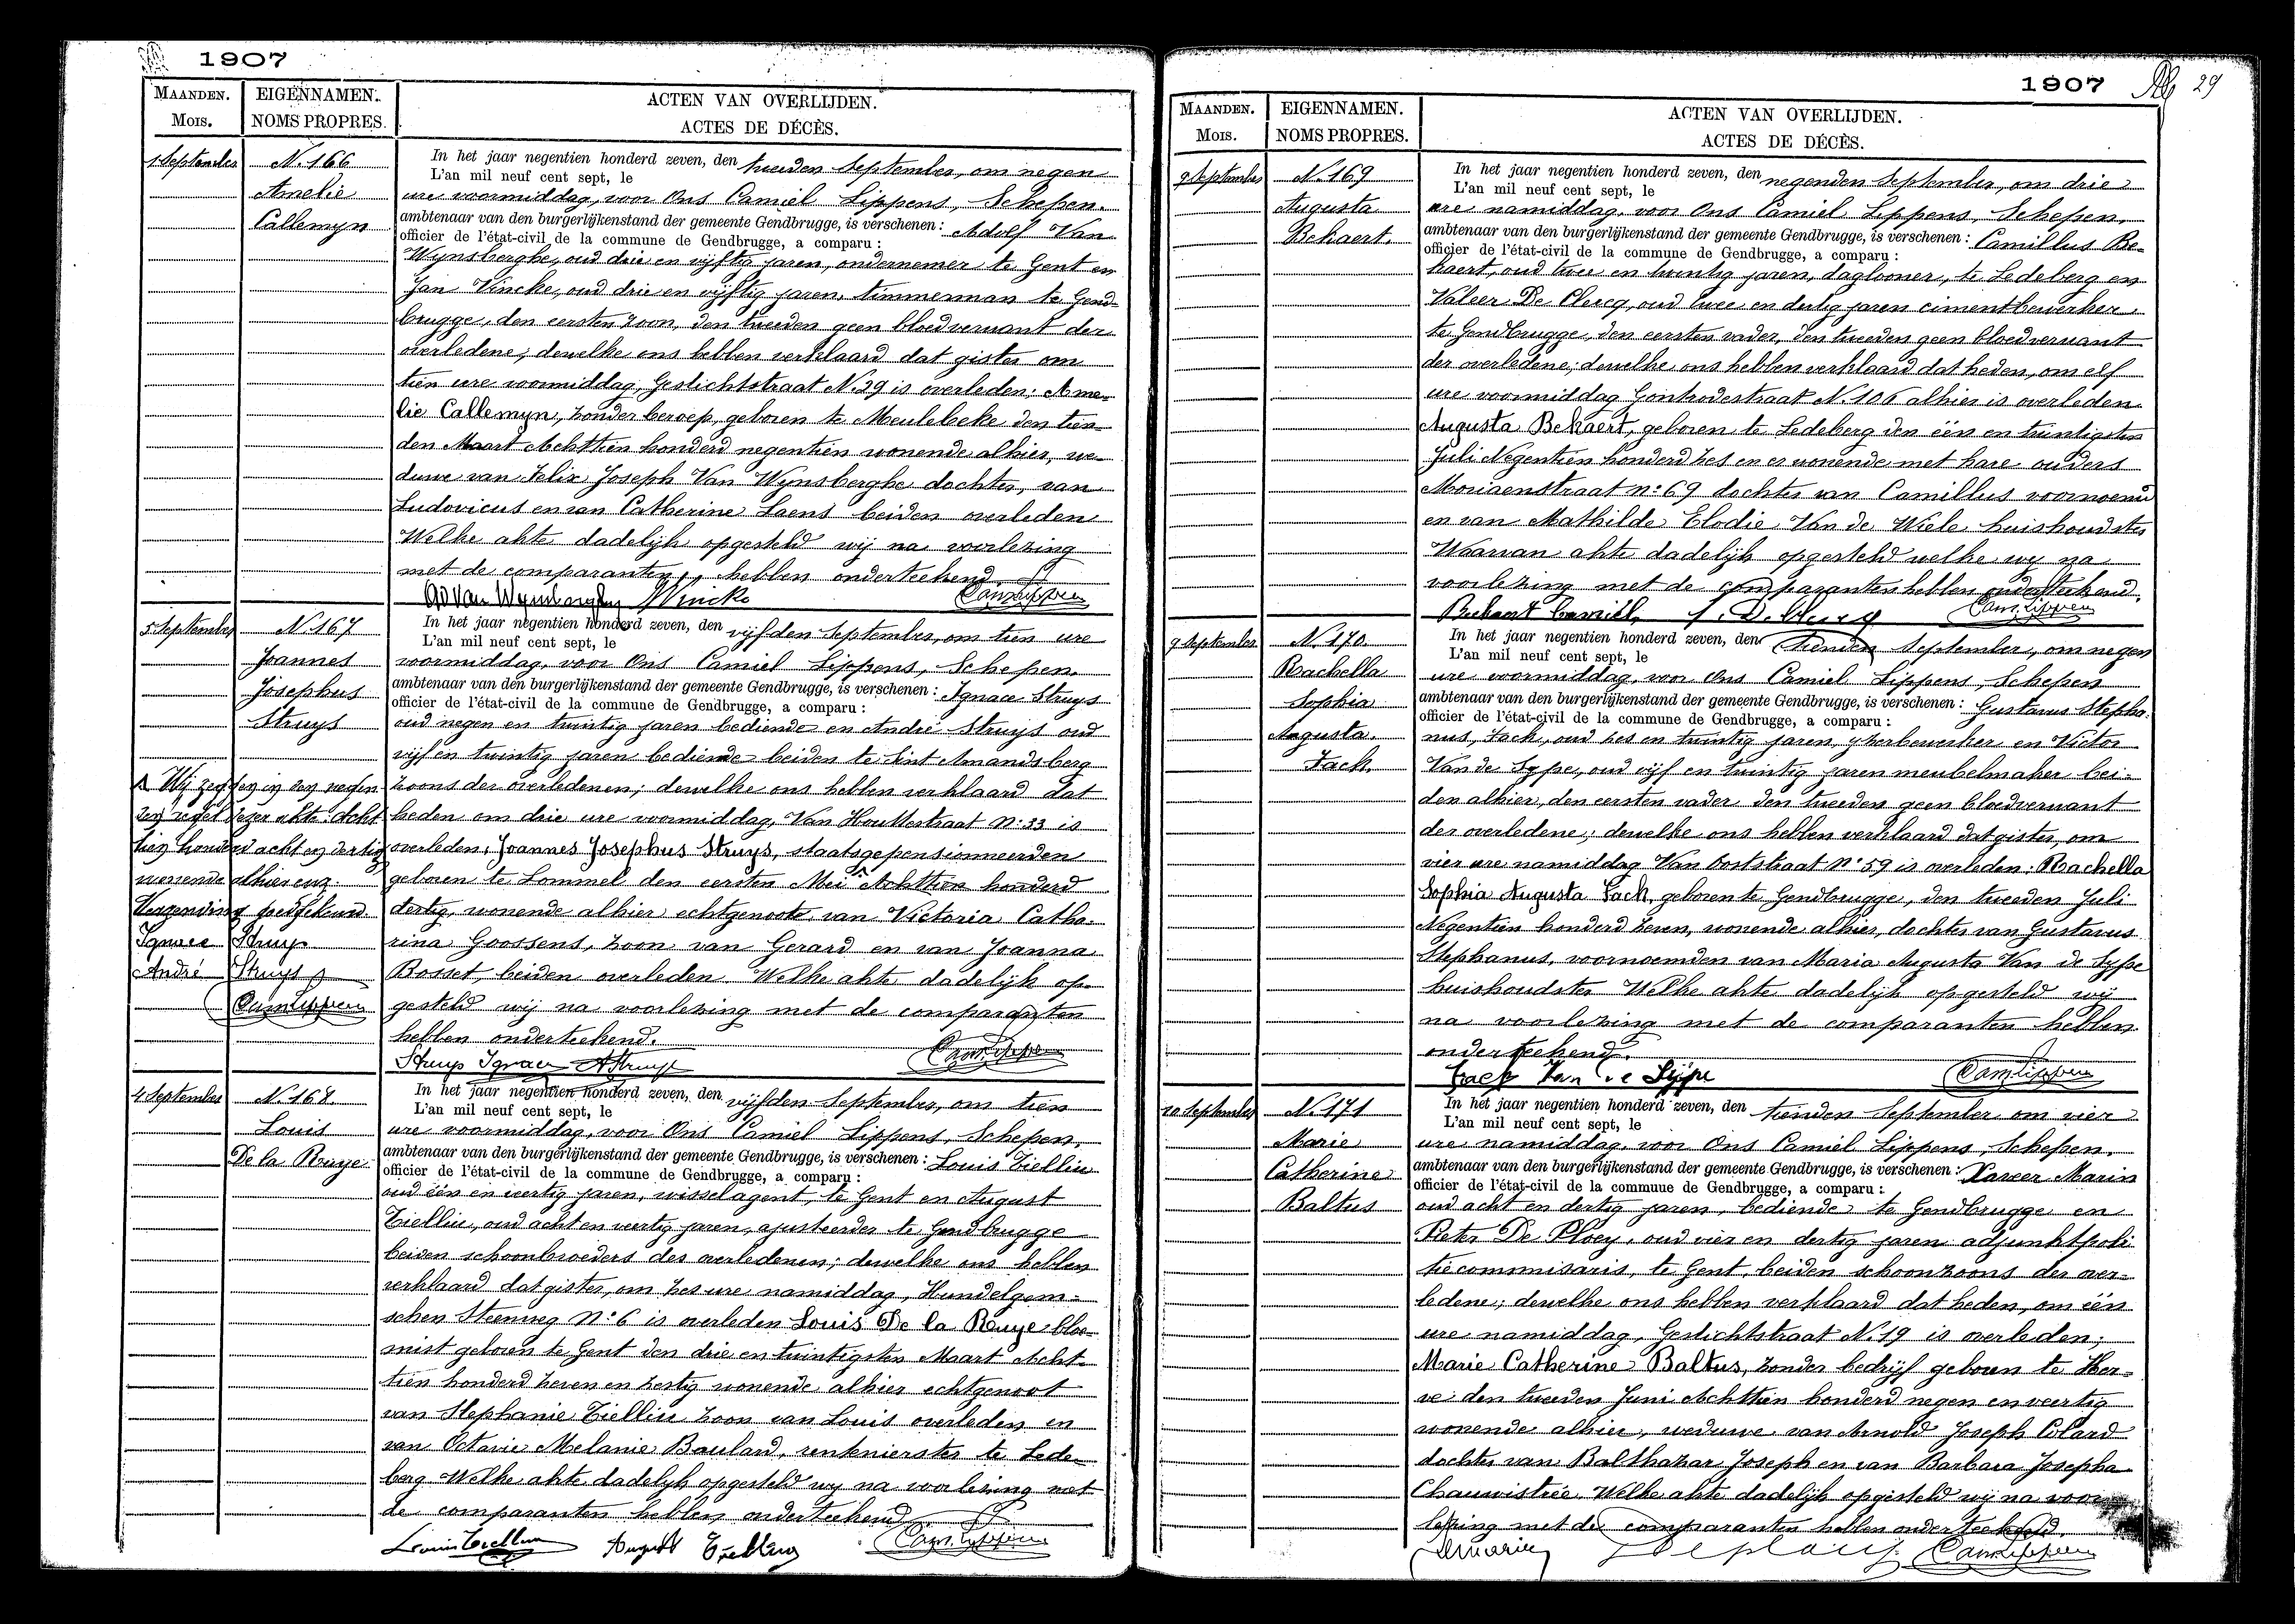 1907
MAANDEN.
MOIS.
EIGENNAMEN.
NOMS PROPRES.
ACTEN VAN OVERLIJDEN.
ACTES DE DÉCÈS.
1 September
N. 166
Amelie
Callemyn
In het jaar negentien honderd zeven, den tweeden September, om negen
L'an mil neuf cent sept, le
ure voormiddag, voor Ons Camiel Lippens, Schepen.
ambtenaar van den burgerlijkenstand der gemeente Gendbrugge, is verschenen: Adolf Van
officier de l'état-civil de la commune de Gendbrugge, a comparu:
Wynsberghe, oud drie en vijftig jaren, ondernemer te Gent en
Jan Vincke, oud drie en vijftig jaren, timmerman te Gend-
brugge, den eersten zoon, den tweeden geen bloedverwant der
overledene; dewelke ons hebben verklaard dat gister om
tien ure voormiddag, Geslichtstraat N. 29 is overleden: Ame-
lie Callemyn, zonder beroep, geboren te Meulebeke den tien-
den Maart Achttien honderd negentien wonende alhier, we-
duwe van Felix Joseph Van Wynsberghe dochter, van
Ludovicus en van Catherine Laens beiden overleden
Welke akte dadelijk opgesteld wij na voorlezing
met de comparanten, hebben onderteekend.
Ad Van Wynsberghe Vincke Cam Lippens
5 September
N. 167
Joannes
Josephus
Struys
In het jaar negentien honderd zeven, den vijfden September, om tien ure
L'an mil neuf cent sept, le
voormiddag, voor Ons Camiel Lippens, Schepen.
ambtenaar van den burgerlijkenstand der gemeente Gendbrugge, is verschenen: Ignace Struys
officier de l'état-civil de la commune de Gendbrugge, a comparu:
oud negen en twintig jaren bediende en André Struys oud
vijf en twintig jaren bediende beiden te Sint Amandsberg
zoons der overledenen; dewelke ons hebben verklaard dat
heden om drie ure voormiddag, Van Houttestraat N: 33 is
overleden: Joannes Josephus Struys, staatsgepensionneerden
geboren te Lommel den eersten Mei Achttien honderd
dertig, wonende alhier echtgenoote van Victoria Catha-
rina Goossens, zoon van Gerard en van Joanna
Bosset beiden overleden Welke akte dadelijk op-
gesteld wij na voorlezing met de comparanten
hebben onderteekend.
Struys Ignace A Struys Cam Lippens
Wij zeggen in den negen
den regel dezer akte: Acht
tien honderd acht en dertig
wonende alhier enz.
Verzending goedgekeurd.
Ignace Struys
André Struys
Cam Lippens
4 September
N. 168.
Louis
De la Ruye
In het jaar negentien honderd zeven, den vijfden September, om tien
L'an mil neuf cent sept, le
ure voormiddag, voor Ons Camiel Lippens, Schepen,
ambtenaar van den burgerlijkenstand der gemeente Gendbrugge, is verschenen: Louis
officier de l'état-civil de la commune de Gendbrugge, a comparu:
oud één en veertig jaren, wisselagent, te Gent en August
oud acht en veertig jaren, ajusteerder te Gendbrugge
beiden schoonbroeders des overledenen; dewelke ons hebben
verklaard dat gister, om zes ure namiddag, Hundelgem-
schen Steenweg N: 6 is overleden Louis De la Ruye bloe-
mist geboren te Gent den drie en twintigsten Maart Acht-
tien honderd zeven en zestig wonende alhier echtgenoot
van Stephanie zoon van Louis overleden en
van Octavie Melanie Baulard, rentenierster te Lede-
berg Welke akte dadelijk opgesteld wij na voorlezing met
de comparanten hebben onderteekend
Louis August Cam Lippens
1907
29
MAANDEN.
MOIS.
EIGENNAMEN.
NOMS PROPRES.
ACTEN VAN OVERLIJDEN.
ACTES DE DÉCÈS.
9 September
N. 169
Augusta
Bekaert.
In het jaar negentien honderd zeven, den negenden September, om drie
L'an mil neuf cent sept, le
ure namiddag, voor Ons Camiel Lippens, Schepen,
ambtenaar van den burgerlijkenstand der gemeente Gendbrugge, is verschenen: Camillus Be-
officier de l'état-civil de la commune de Gendbrugge, a comparu:
kaert, oud twee en twintig jaren, daglooner, te Ledeberg en
Valeer De Clercq, oud twee en dertig jaren cimentbewerker
te Gendbrugge, den eersten vader, den tweeden geen bloedverwant
der overledene; dewelke ons hebben verklaard dat heden, om elf
ure voormiddag Gontrodestraat N. 106 alhier is overleden
Augusta Bekaert, geboren te Ledeberg den één en twintigsten
Juli Negentien honderd zes en er wonende met hare ouders
Moriaenstraat n: 69 dochter van Camillus voornoemd
en van Mathilde Elodie Van de Wiele huishoudster
Waarvan akte dadelijk opgesteld welke wij na
voorlezing met de comparanten hebben onderteekend.
Bekaert Camiel Cam Lippens
9 September
N. 170
Rachella
Sophia
Augusta.
Fack.
In het jaar negentien honderd zeven, den tienden September, om negen
L'an mil neuf cent sept, le
ure voormiddag, voor Ons Camiel Lippens, Schepen
ambtenaar van den burgerlijkenstand der gemeente Gendbrugge, is verschenen: Gustavus Stepha-
officier de l'état-civil de la commune de Gendbrugge, a comparu:
nus, Fack, oud zes en twintig jaren, ijzerbewerker en Victor
Van de Sype, oud vijf en twintig jaren meubelmaker bei-
den alhier, den eersten vader den tweeden geen bloedverwant
der overledene; dewelke ons hebben verklaard dat gister, om
vier ure namiddag Van Ooststraat N: 59 is overleden: Rachella
Sophia Augusta Fack, geboren te Gendbrugge, den tweeden Juli
Negentien honderd zeven, wonende alhier, dochter van Gustavus
Stephanus, voornoemd en van Maria Augusta Van de Sype
huishoudster Welke akte dadelijk opgesteld wij
na voorlezing met de comparanten hebben
onderteekend.
Fack Van de Sijpe Cam Lippens
10 September
N. 171
Marie
Catherine
Baltus
In het jaar negentien honderd zeven, den tienden September om vier
L'an mil neuf cent sept, le
ure namiddag, voor Ons Camiel Lippens, Schepen.
ambtenaar van den burgerlijkenstand der gemeente Gendbrugge, is verschenen: Xaveer Marin
officier de l'état-civil de la commune de Gendbrugge, a comparu:
oud acht en dertig jaren, bediende te Gendbrugge en
Pieter De Ploey, oud vier en dertig jaren adjunktpoli
tiecommisaris, te Gent, beiden schoonzoons der over-
ledene; dewelke ons hebben verklaard dat heden, om één
ure namiddag, Geslichtstraat N. 19 is overleden;
Marie Catherine Baltus, zonder bedrijf geboren te Her-
ve den tweeden Juni Achttien honderd negen en veertig
wonende alhier, weduwe van Arnold Joseph Colard
dochter van Balthazar Joseph en van Barbara Josepha
Chauvistrée. Welke akte dadelijk opgesteld wij na voor
lezing met de comparanten hebben onderteekend.
Deploey Cam Lippens